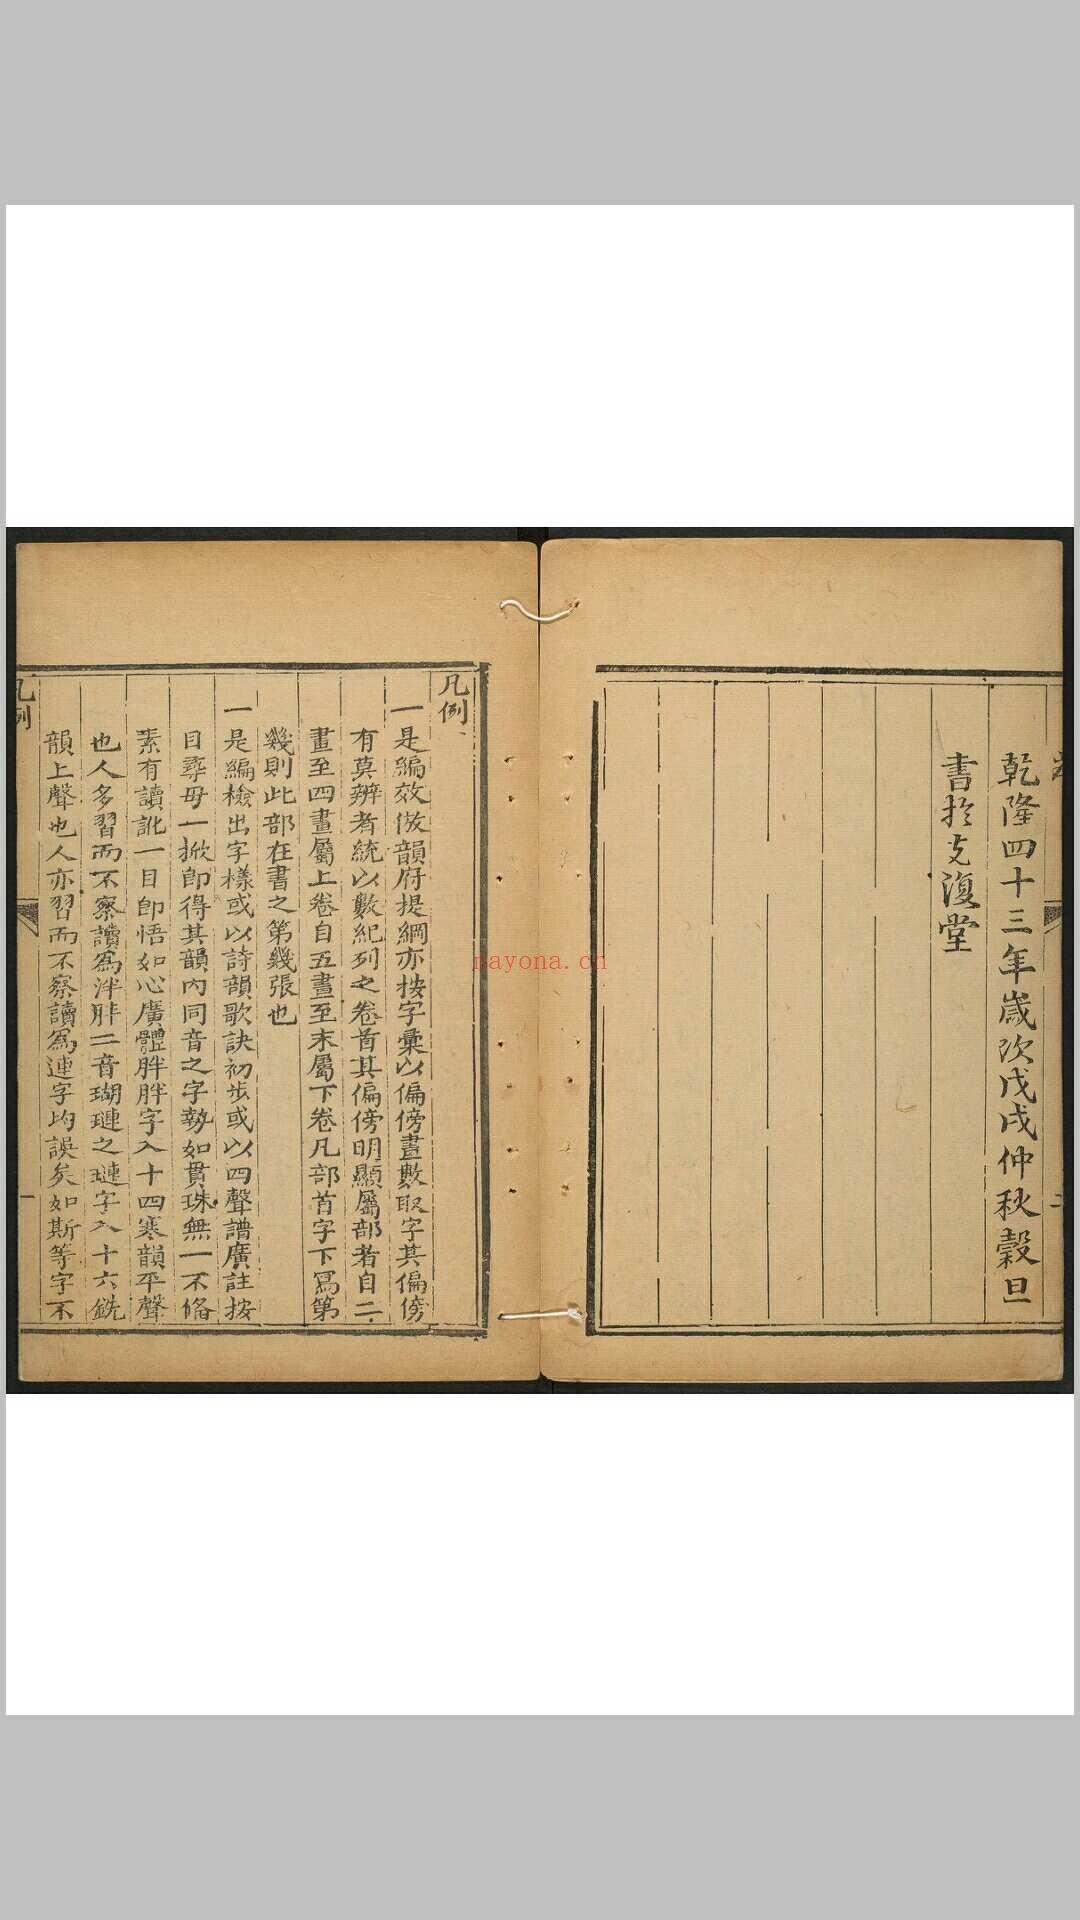 乾隆四十三年歲次戊戌仲秋穀旦
書於支復堂
二
凡例
一是編效倣韻府提綱亦按字彙以偏傍畫數取字其偏傍
有莫辨者統以數紀列之卷首其偏傍明顯屬部者自二
畫至四畫屬上卷自五畫至末屬下卷凡部首字下寫第
幾則此部在書之第幾張也
一是編檢出字樣或以詩韻歌訣初步或以四聲譜廣註按
目尋母一掀卽得其韻內同音之字勢如貫珠無一不俻
素有讀訛一目卽悟如心廣體胖胖字入十四寒韻平聲
也人多習而不察讀為泮胖二音瑚璉之璉字入十六銑
韻上聲也人亦習而不察讀為連字均誤矣如斯等字不
凡例
一
nayona.cn